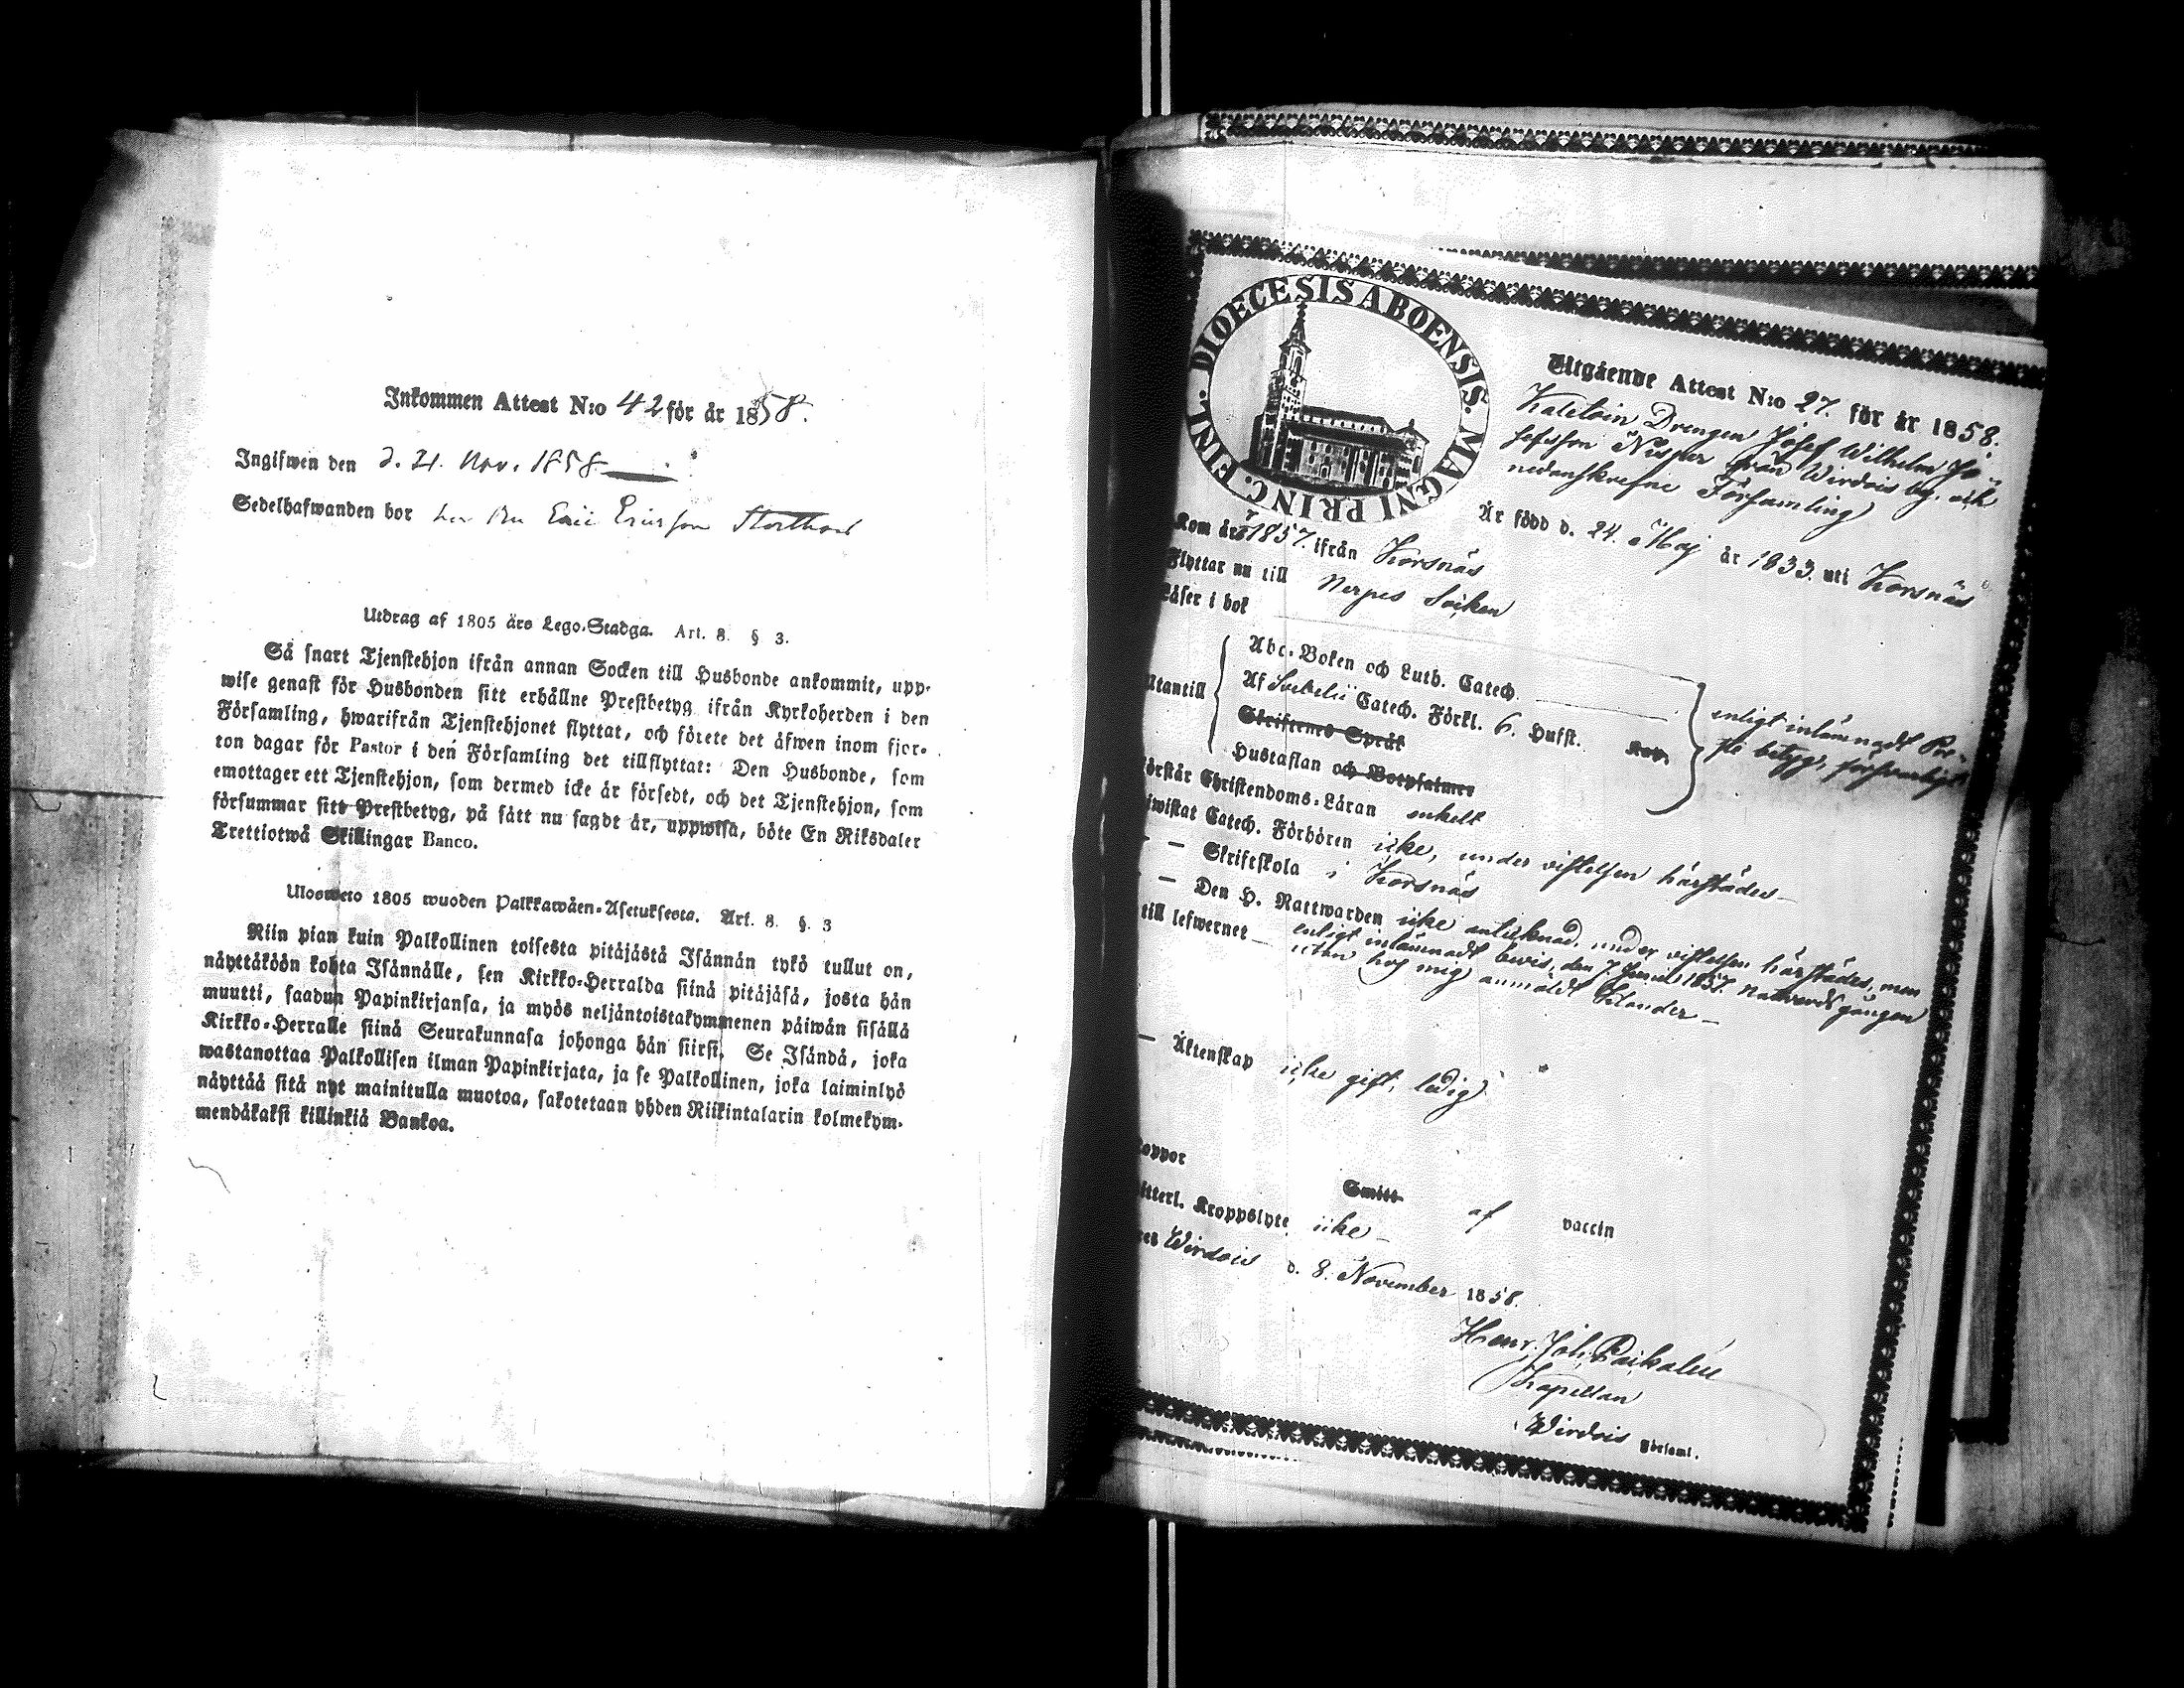 Inkommen Attest N:o 42 för år 1858.
Ingifwen den d. 21. Nov. 1858
Sedelhafwanden bor hos Eric Ersson
Utdrag af 1805 års Lego-Stadga. Art. 8. § 3.
Så snart Tjenstehjon ifrån annan Socken till Husbonde ankommit, upp-
wise genast för Husbonden sitt erhållne Prestbetyg ifrån Kyrkoherden i den
Församling, hwarifrån Tjenstehjonet flyttat, och förete det äfwen inom fjor-
ton dagar för Pastor i den Församling det tillflyttat: Den Husbonde, som
emottager ett Tjenstehjon, som dermed icke är försedt, och det Tjenstehjon, som
försummar sitt Prestbetyg, på sätt nu sagdt är, uppwisa, böte En Riksdaler
Trettiotwå Skillingar Banco.
Ulosweto 1805 wuoden Palkkawäen-Asetuksesta. Art. 8. §. 3
Niin pian kuin Palkollinen toisesta pitäjästä Isännän tykö tullut on,
näyttäköön kohta Isännälle, sen Kirkko-Herralda siinä pitäjäsä, josta hän
muutti, saadun Papinkirjansa, ja myös neljäntoistakymmenen päiwän sisällä
Kirkko-Herralle siinä Seurakunnasa johonga hän siirsi. Se Isändä, joka
wastanottaa Palkollisen ilman Papinkirjata, ja se Palkollinen, joka laiminlyö
näyttää sitä nyt mainitulla muotoa, sakotetaan yhden Riikintalarin kolmekym-
mendäkaksi killinkiä Bankoa.
DIOECESIS ABOENSIS. MAGNI PRINC. FINL.
Utgående Attest N:o 27. för år 1858.
Drengen Josef Wilhelm Jo-
sefsson Nisper från Wirdois by, och
nedanskrefne Församling
Är född d. 24. Maj år 1833. uti Korsnäs
Kom år 1857. ifrån Korsnäs
Flyttar nu till Nerpes Socken
Läser i bok
Abc-Boken och Luth. Catech.
Utantill Af Svebelii Catech. Förkl. 6. Hufst. Kap.
Skriftenes Språk
Hustaflan och Botpsalmer
enligt inlemnadt Pre-
ste betyg, försvarligt
Förstår Christendoms-Läran enkelt
iwistat Catech. Förhören icke, under vistelsen härstädes
— Skriftskola i Korsnäs
— Den H. Nattwarden icke antecknad, under vistelsen härstädes, men
till lefwernet — enligt inlämnadt bevis, den 7. Junii 1857. nattvardsgången
utan hos mig anmäldt hinder —
— Äktenskap icke gift, ledig
oppor Smitt af vaccin
itterl. Kroppslyte icke
Wirdois d. 8. November 1858.
Henr. Joh.
Kapellan
Wirdois Församl.